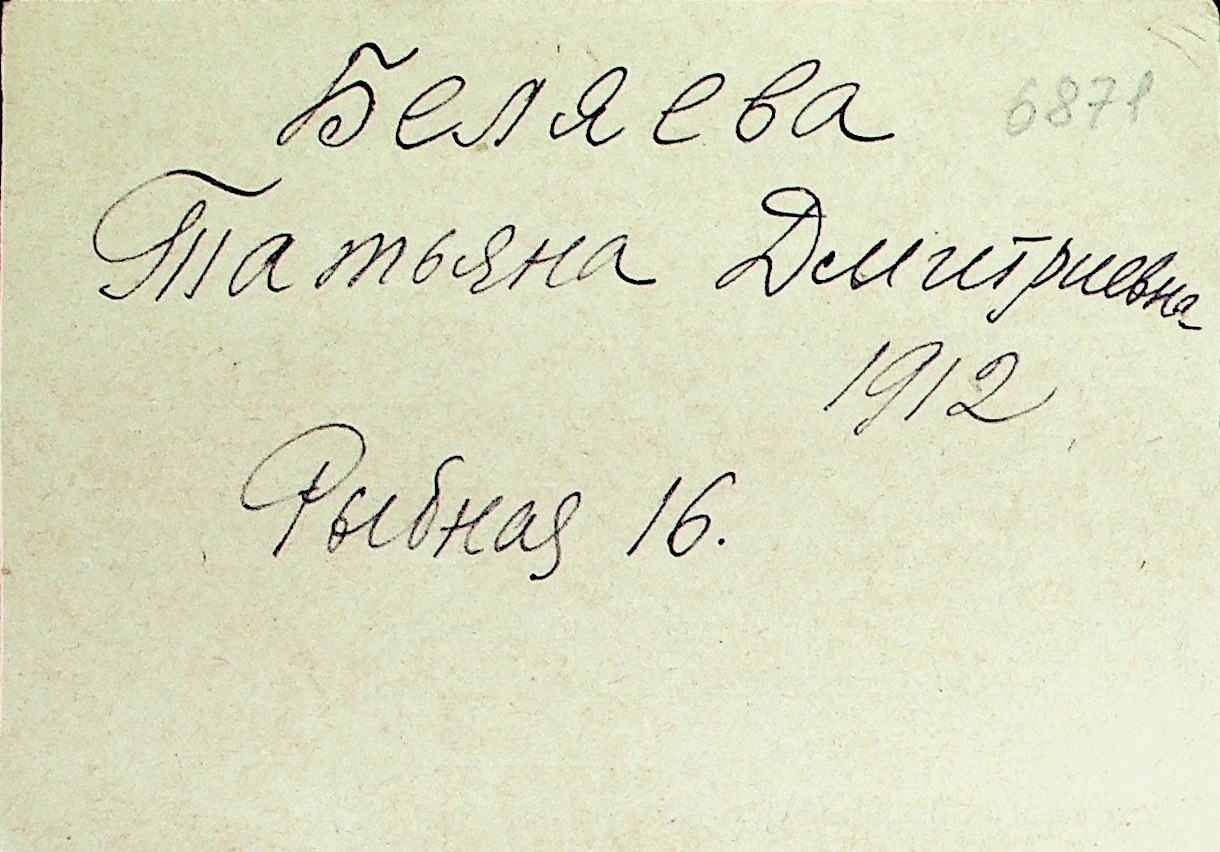 Беляева 6871
Татьяна Дмитриевна
1912
Рыбная 16.